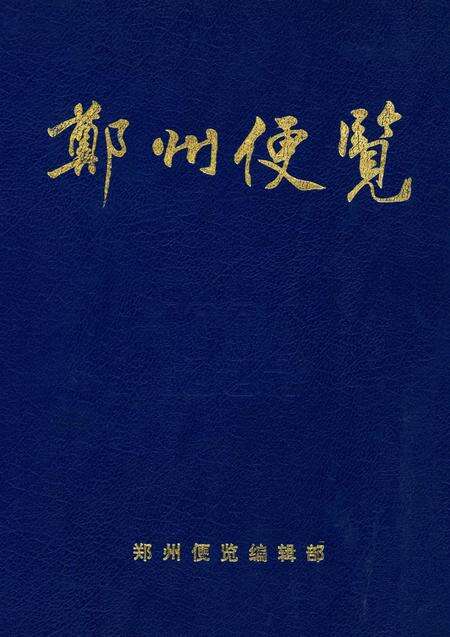 鄭州便覽
郑州便览编辑部